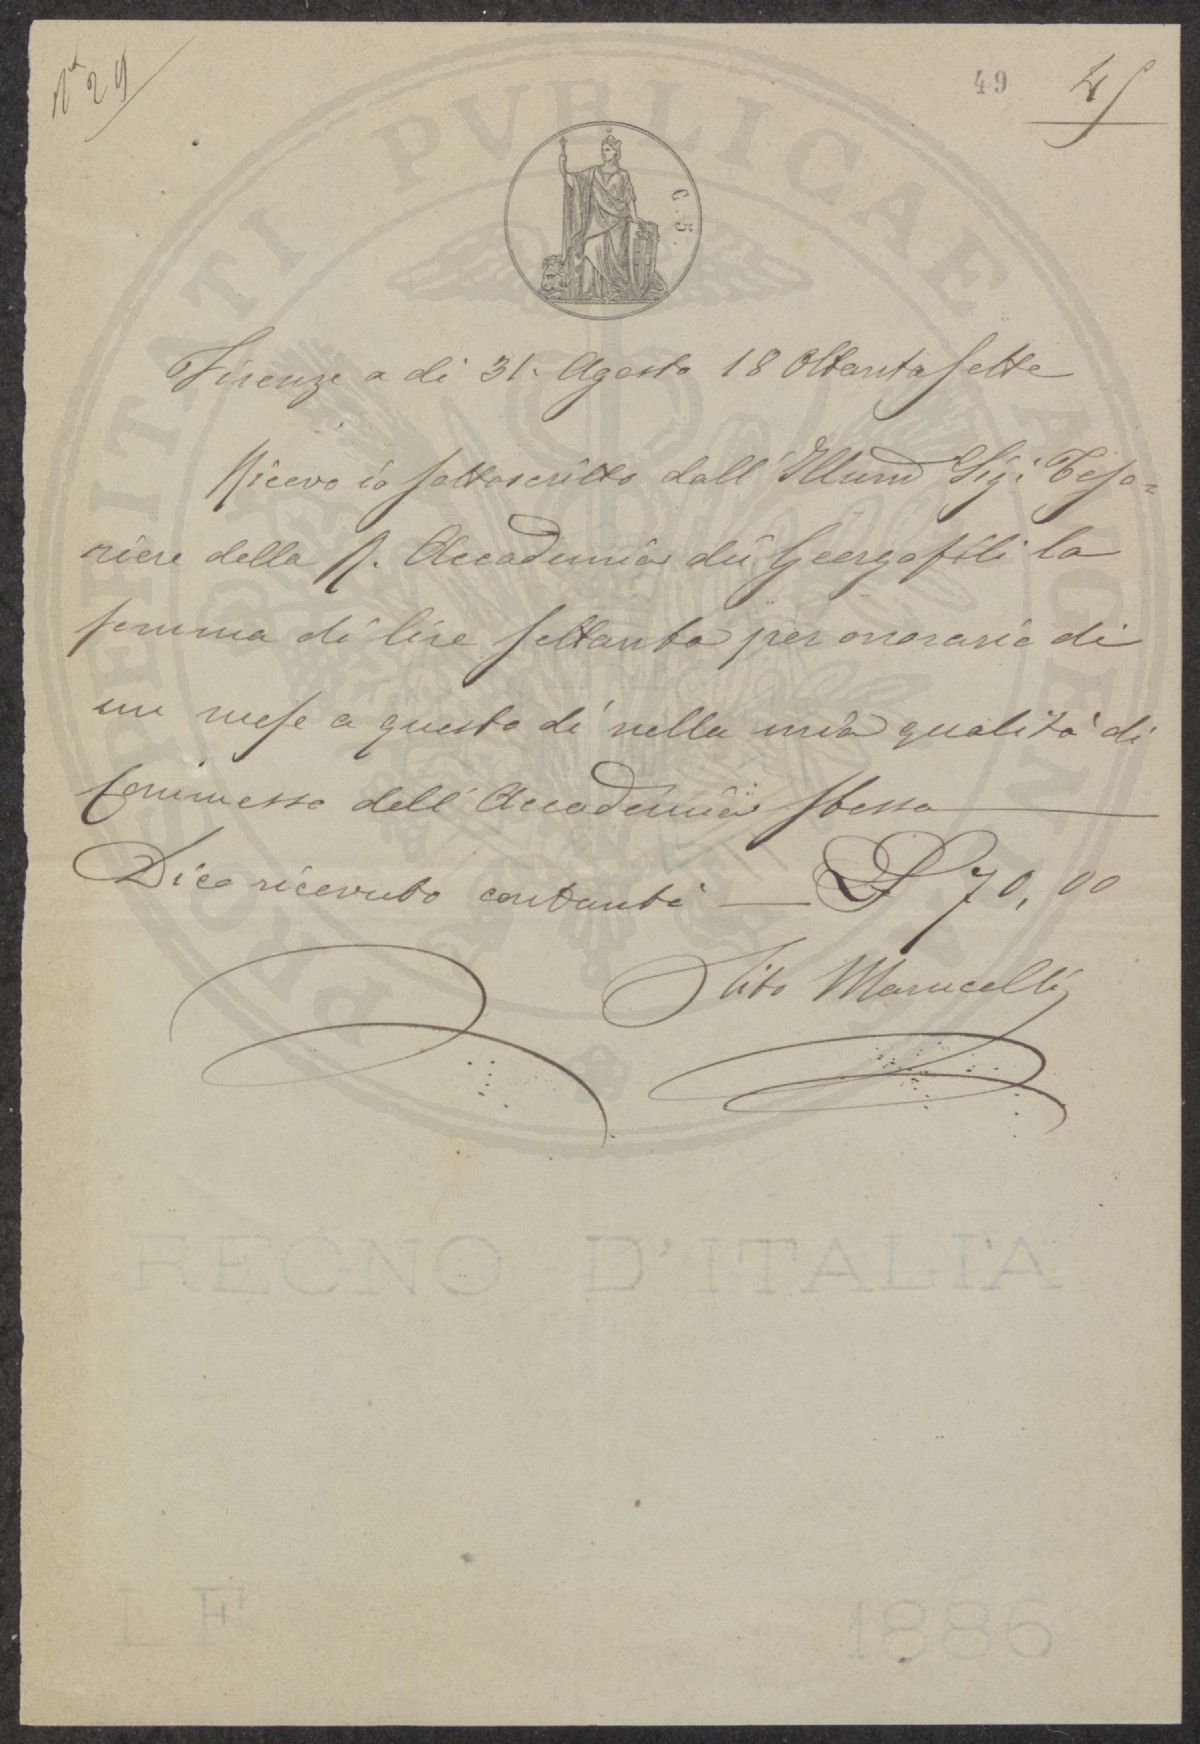 Nº 29
49
45
C. 5.
PROSPERITATI PVBLICAE AVGENDAE
Firenze a di 31. Agosto 18 Ottantasette
Ricevo io sottoscritto dall' Illmo Sig: Teso=
riere della R. Accademia dei Georgofili la
somma di lire settanta per onorario di
un mese a questo dì nella mia qualità di
Commesso dell' Accademia stessa
Dico ricevuto contanti — L 70,00
Tito Marucelli
REGNO D'ITALIA
LF 1886